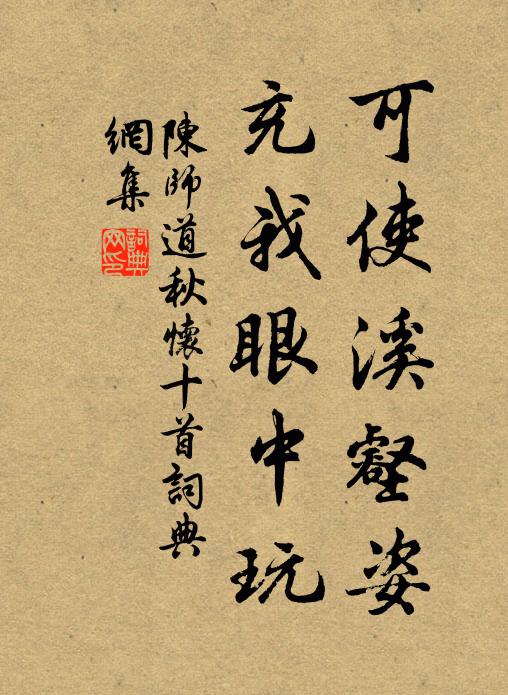 可使溪壑姿
充我眼中玩
陳師道秋懷十首詞典
網集
詞典網印